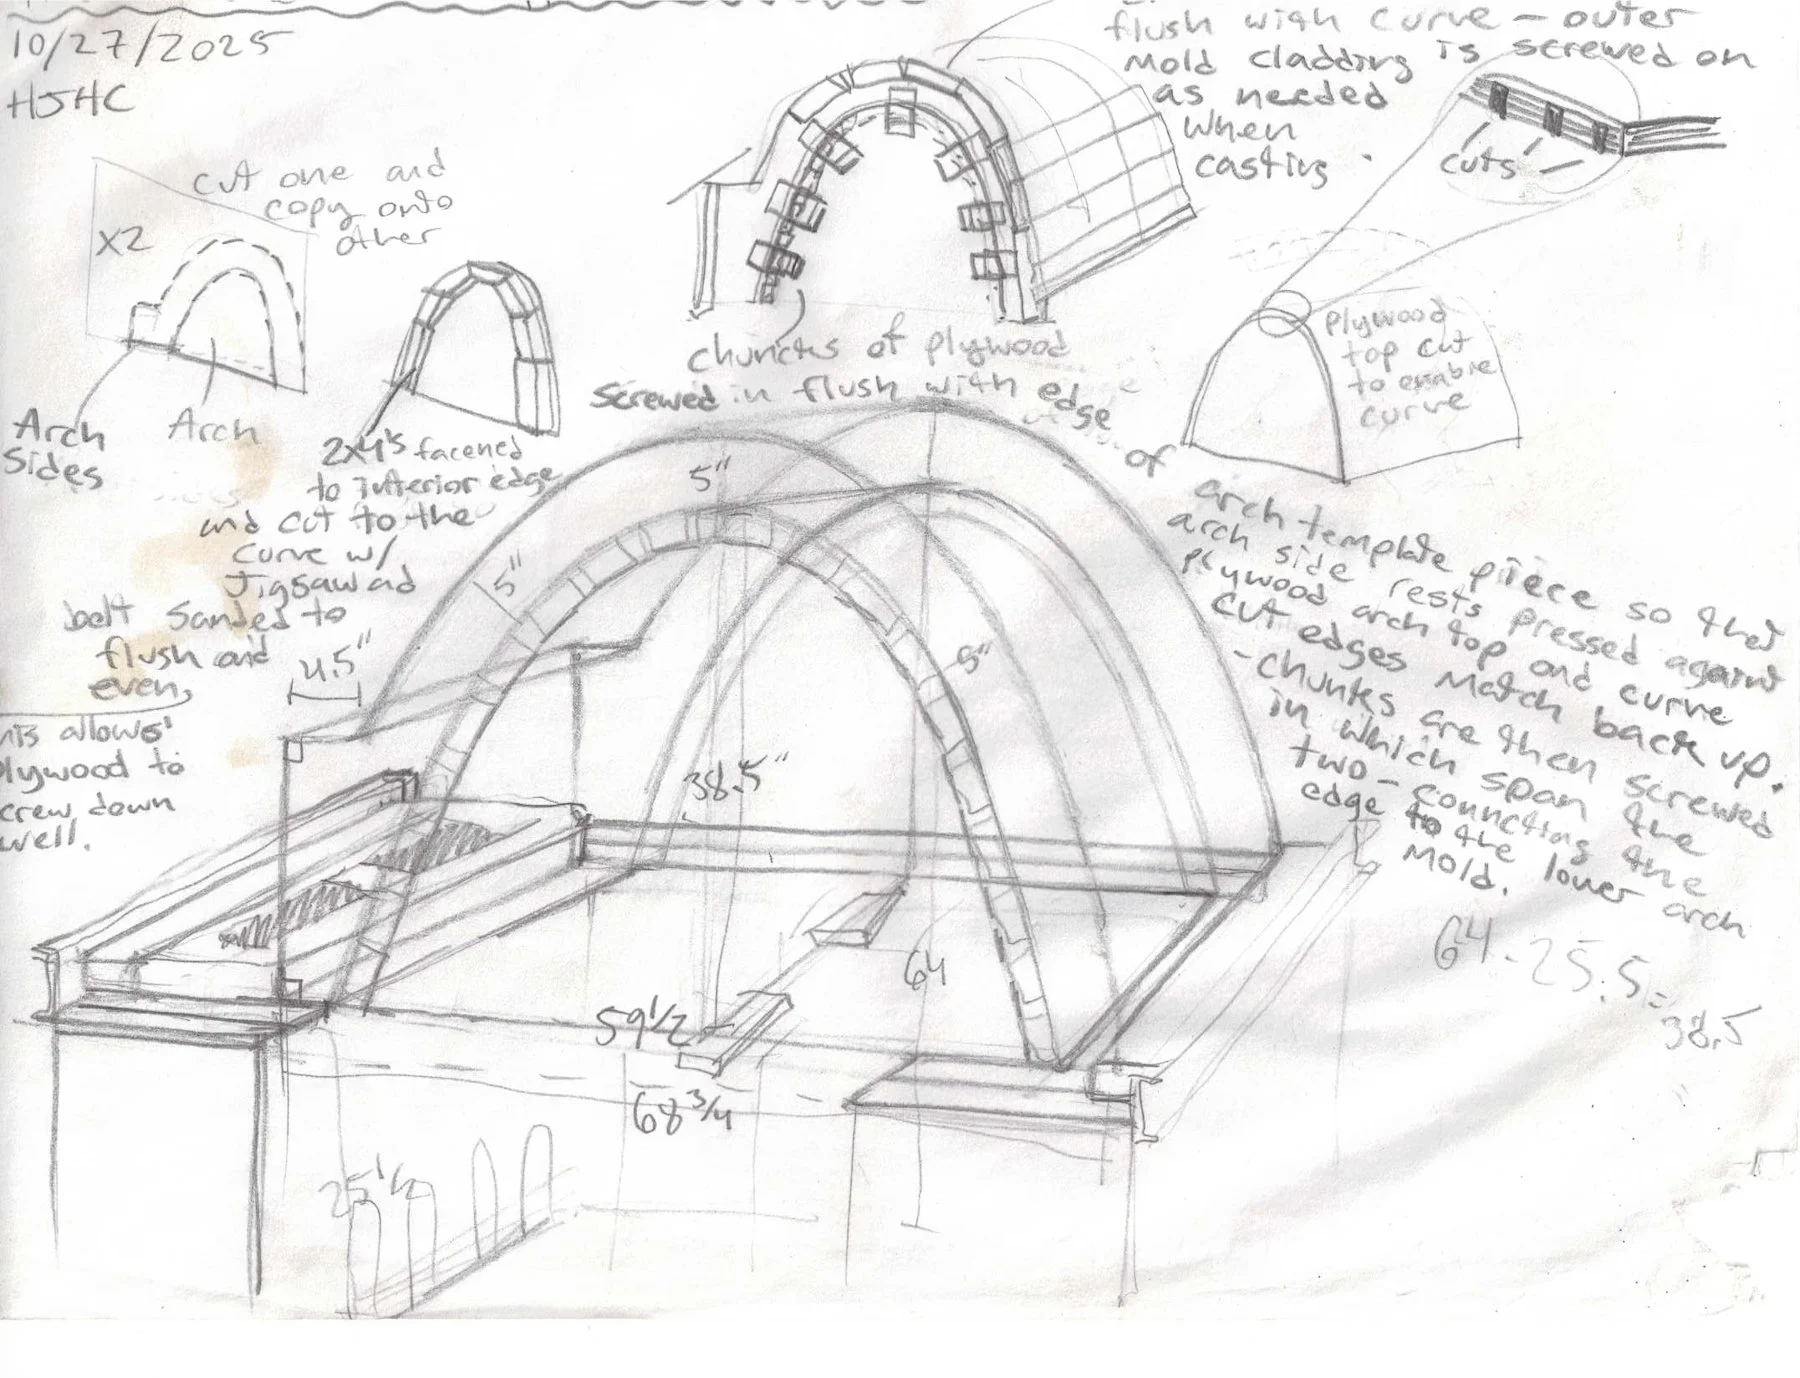 10/27/2025
HJHC
flush with curve - outer
mold cladding is screwed on
as needed
when
casting.
cuts
cut one and
copy onto
other
x2
Arch
sides
Arch
2x4's facened
to interior edge
and cut to the
curve w/
Jigsaw ad
belt sanded to
flush and
even,
allows
plywood to
screw down
well.
chuncks of plywood
screwed in flush with edge
of
arch template piece so that
arch side rests pressed against
plywood arch top and curve
cut edges match back up.
- chunks are then screwed
in which span the
two - conncting the
edge to the lower arch
mold.
plywood
top cut
to enable
curve
5"
5"
5"
4.5"
38.5"
64
59 1/2
68 3/4
25 1/2
64 - 25.5 =
38.5